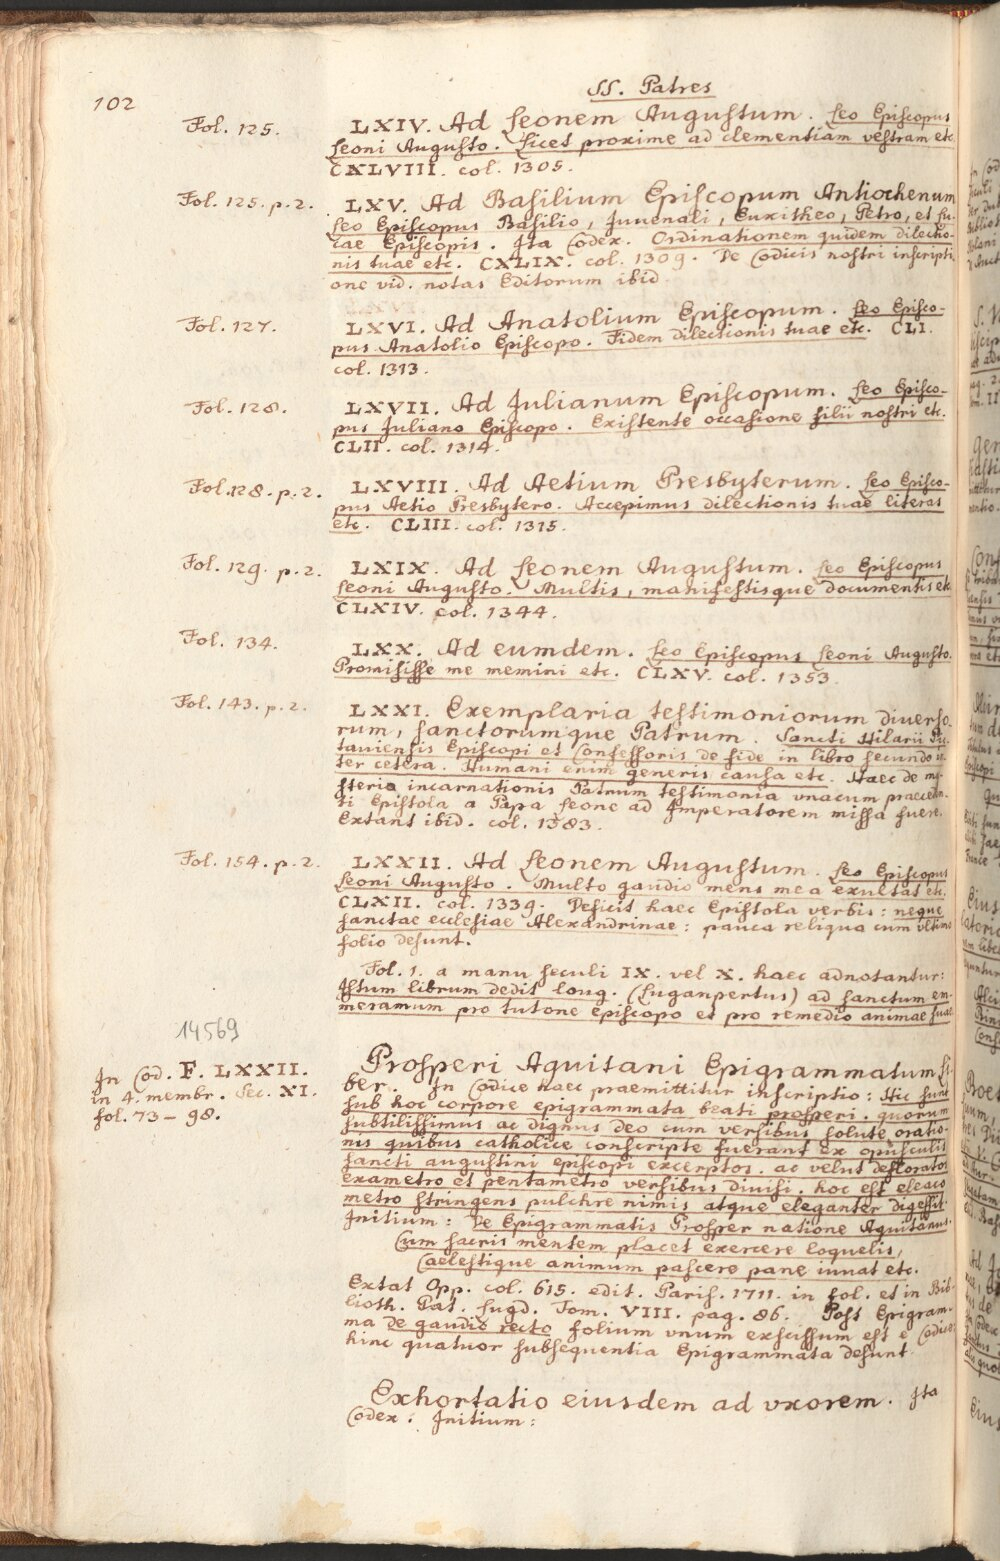 102
SS. Patres
Fol. 125.
LXIV. Ad Leonem Auguſtum. Leo Epiſcopus
Leoni Auguſto. Licet proxime ad clementiam veſtram etc.
CXLVIII. col. 1305.
Fol. 125. p. 2.
LXV. Ad Baſilium Epiſcopum Antiochenum
Leo Epiſcopus Baſilio, Juvenali, Euxitheo, Petro, et Lu-
cae Epiſcopis. Ita Codex. Ordinationem quidem dilectio-
nis tuae etc. CXLIX. col. 1309. De Codicis noſtri inſcripti
one vid. notas Editorum ibid.
Fol. 127.
LXVI. Ad Anatolium Epiſcopum. Leo Epiſco-
pus Anatolio Epiſcopo. Fidem dilectionis tuae etc. CLI.
col. 1313.
Fol. 128.
LXVII. Ad Julianum Epiſcopum. Leo Epiſco-
pus Juliano Epiſcopo. Exiſtente occaſione filii noſtri etc.
CLII. col. 1314.
Fol. 128. p. 2.
LXVIII. Ad Aetium Presbyterum. Leo Epiſco-
pus Aetio Presbytero. Accepimus dilectionis tuae literas
etc. CLIII. col. 1315.
Fol. 129. p. 2.
LXIX. Ad Leonem Auguſtum. Leo Epiſcopus
Leoni Auguſto. Multis, manifeſtisque documentis etc
CLXIV. col. 1344.
Fol. 134.
LXX. Ad eumdem. Leo Epiſcopus Leoni Auguſto.
Promiſiſſe me memini etc. CLXV. col. 1353
Fol. 143. p. 2.
LXXI. Exemplaria teſtimoniorum diverſo-
rum, ſanctorumque Patrum. Sancti Hilarii Pic
tavienſis Epiſcopi et Confeſſoris de fide in libro ſecundo in
ter cetera. Humani enim generis cauſa etc. Haec de my-
ſterio incarnationis Patrum teſtimonia vnacum praeceden-
ti Epiſtola a Papa Leone ad Imperatorem miſſa fuere.
Extant ibid. col. 1383.
Fol. 154. p. 2.
LXXII. Ad Leonem Auguſtum. Leo Epiſcopus
Leoni Auguſto. Multo gaudio mens mea exultat etc.
CLXII. col. 1339. Deficit haec Epiſtola verbis: neque
ſanctae eccleſiae Alexandrinae: pauca reliqua cum vltimo
folio deſunt.
Fol. 1. a manu ſeculi IX. vel X. haec adnotantur:
Iſtum librum dedit long. (Luganpertus) ad ſanctum em-
meramum pro tutone epiſcopo et pro remedio animae ſuae
14569
In Cod. F. LXXII.
in 4. membr. Sec. XI.
fol. 73 – 98.
Proſperi Aquitani Epigrammatum Li-
ber. In Codice haec praemittitur inſcriptio: Hic ſunt
ſub hoc corpore epigrammata beati proſperi. quorum
ſubtiliſſimus ac dignus deo cum verſibus ſolute oratio-
nis quibus catholice conſcripte fuerant ex opuſculis
ſancti auguſtini epiſcopi excerptos. ac velut defloratos
exametro et pentametro verſibus diuiſi. hoc eſt eleaco
metro ſtringens pulchre nimis atque eleganter digeſſit.
Initium: De Epigrammatis Proſper natione Aquitanus.
Cum ſacris mentem placet exercere loquelis,
Caeleſtique animum paſcere pane iuuat etc.
Extat Opp. col. 615. edit. Pariſ. 1711. in fol. et in Bib-
lioth. Pat. Lugd. Tom. VIII. pag. 86. Poſt Epigram-
ma De gaudio recto folium vnum exſciſſum eſt e Codice:
hinc quatuor ſubſequentia Epigrammata deſunt.
Exhortatio eiusdem ad vxorem. Ita
Codex: Initium: